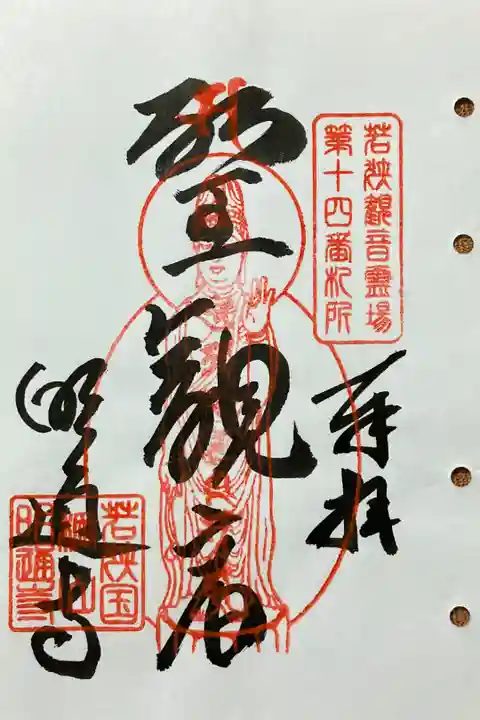 若狭觀音霊場
第十四番札所
奉拝
聖觀音
明通寺
若狭国
棡山
明通寺